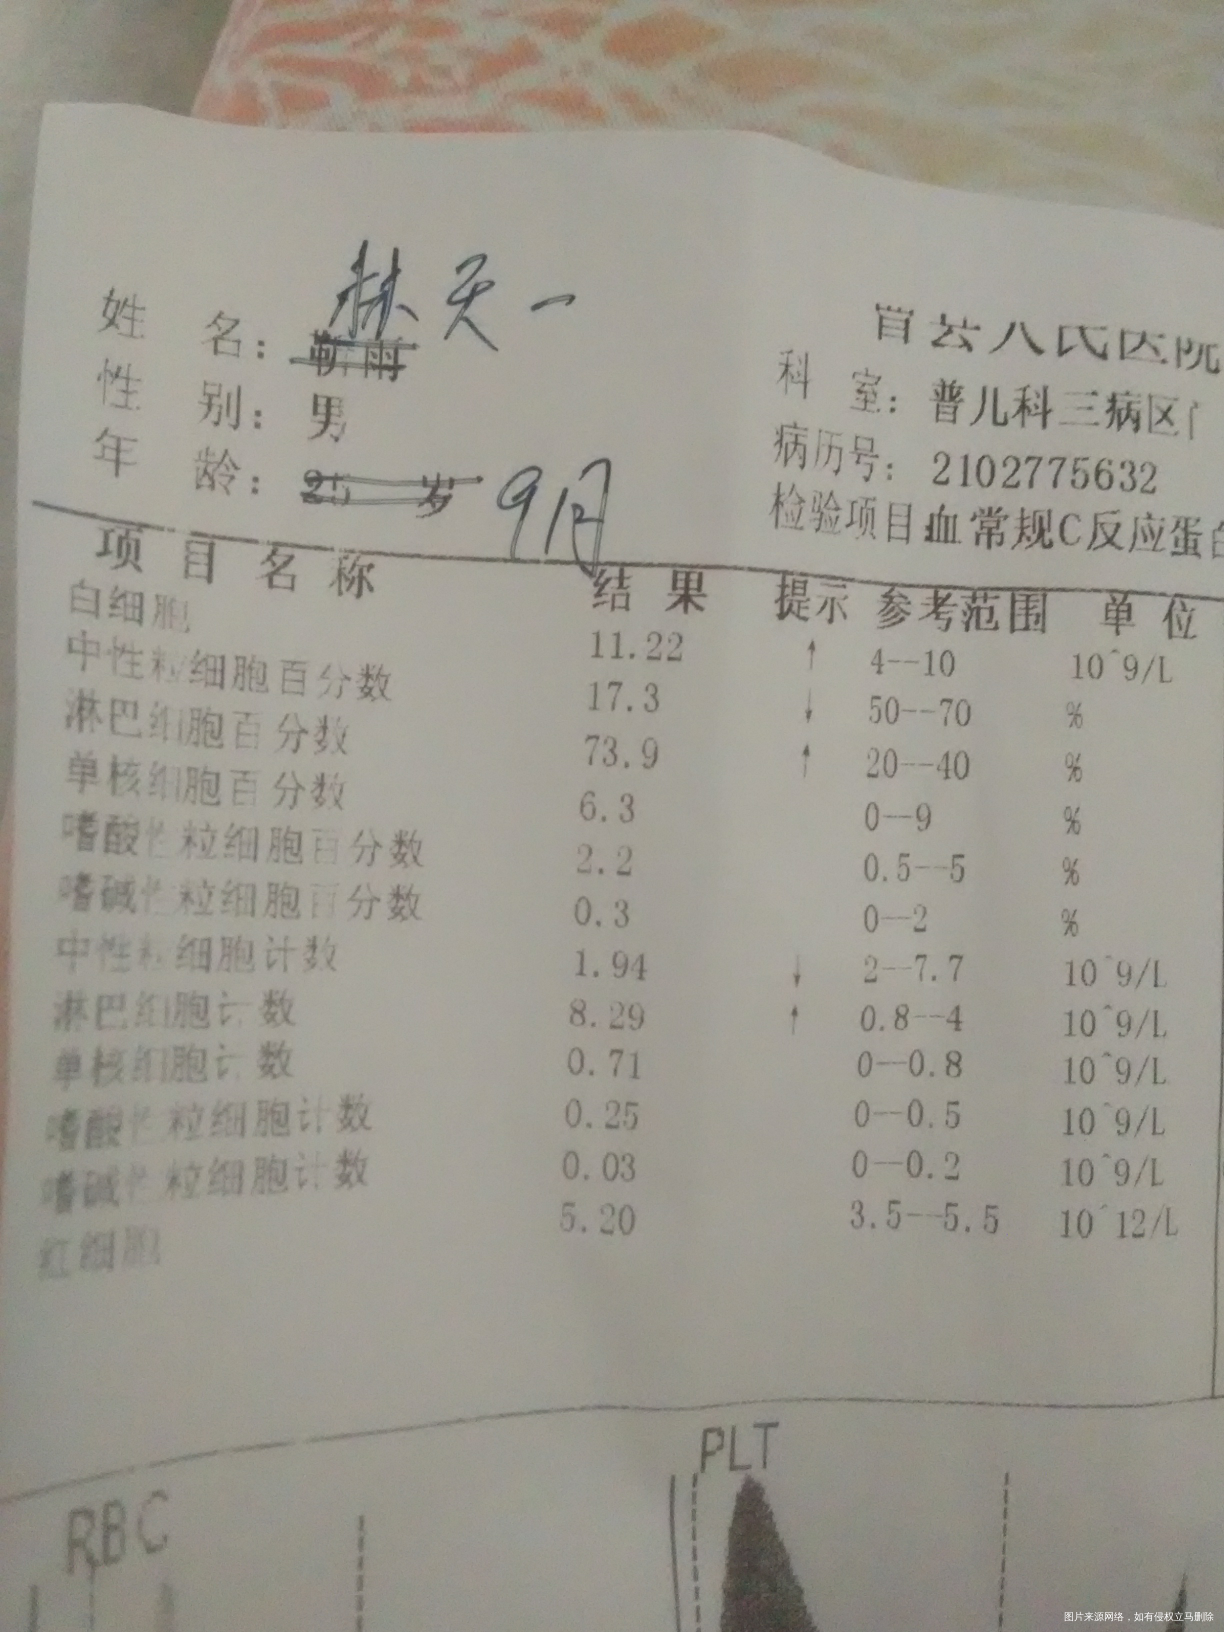 林天一
姓 名： 靳雨
性 别： 男
年 龄： 25 岁 9月
人民医院
科 室： 普儿科三病区
病历号： 2102775632
检验项目 血常规C反应蛋白
项目名称 结果 提示 参考范围 单位
白细胞 11.22 ↑ 4--10 10^9/L
中性粒细胞百分数 17.3 ↓ 50--70 %
淋巴细胞百分数 73.9 ↑ 20--40 %
单核细胞百分数 6.3 0--9 %
嗜酸性粒细胞百分数 2.2 0.5--5 %
嗜碱性粒细胞百分数 0.3 0--2 %
中性粒细胞计数 1.94 ↓ 2--7.7 10^9/L
淋巴细胞计数 8.29 ↑ 0.8--4 10^9/L
单核细胞计数 0.71 0--0.8 10^9/L
嗜酸性粒细胞计数 0.25 0--0.5 10^9/L
嗜碱性粒细胞计数 0.03 0--0.2 10^9/L
红细胞 5.20 3.5--5.5 10^12/L
RBC
PLT
图片来源网络，如有侵权立马删除